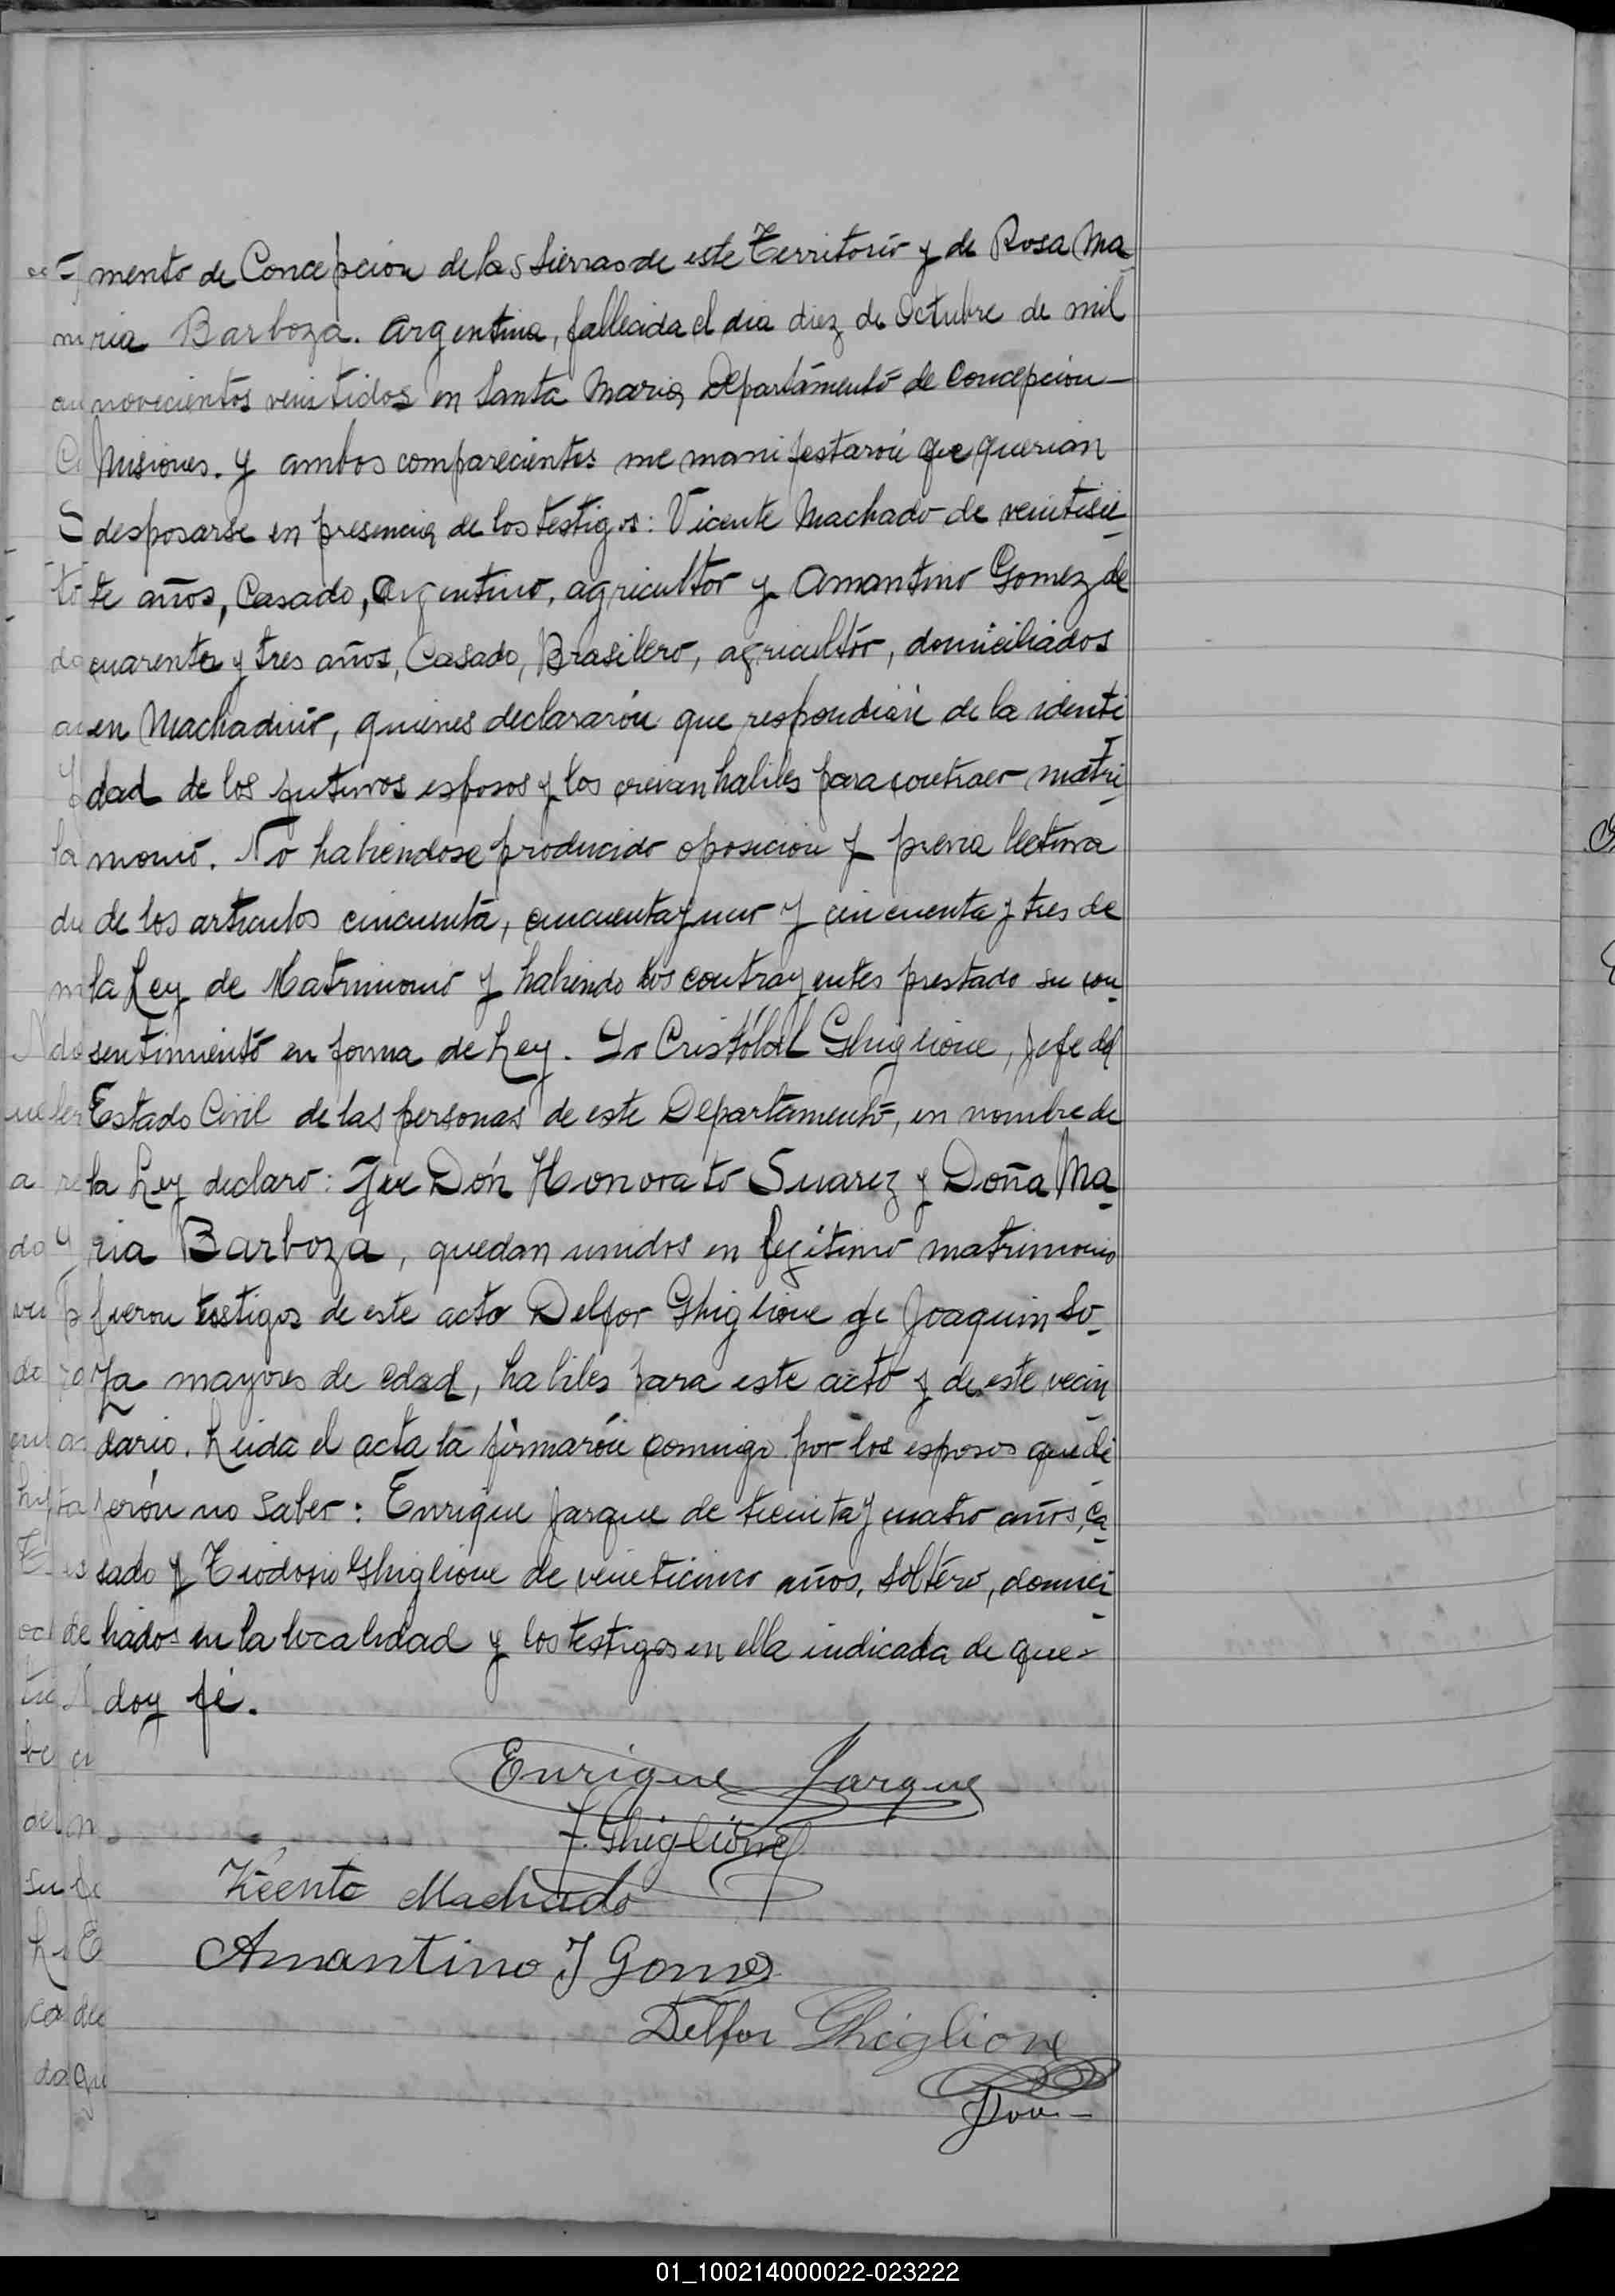 mento de Concepción de las Sierras de este Territorio y de Rosa Ma
ria Barboza. Argentina, fallecida el dia diez de Octubre de mil
novecientos veintidos en Santa Maria Departamento de Concepcion —
Misiones. Y ambos comparecientes me manifestarón que querian
desposarse en presencia de los testigos: Vicente Machado de veintisie
te años, Casado, Argentino, agricultor y Amantino Gomez de
cuarenta y tres años, Casado, Brasilero, agricultor, domiciliados
en Machadiño, quienes declararón que respondian de la identi
dad de los futuros esposos y los creian habiles para contraer matri
monio. No habiendose producido oposicion y previa lectura
de los articulos cincuenta, cincuenta y uno y cincuenta y tres de
la Ley de Matrimonio y habiendo los contrayentes prestado su con
sentimiento en forma de Ley. Yo Cristóbal Ghiglione, Jefe del
Estado Civil de las personas de este Departamento, en nombre de
la Ley declaro: Que Dón Honorato Suarez y Doña Ma
ria Barboza, quedan unidos en legítimo matrimonio
fueron testigos de este acto Delfor Ghiglione y Joaquin So
za mayores de edad, habiles para este acto y de este vecin
dario. Leida el acta la firmarón conmigo por los esposos que di
jerón no saber: Enrique Jarque de treinta y cuatro años, ca
sado y Teodosio Ghiglione de veinticinco años, soltero, domici
liados en la localidad y los testigos en ella indicada de que-
doy fé.
Enrique Jarque
T. Ghiglione
Vicente Machado
Amantino J Gomes
Delfor Ghiglione
01_100214000022-023222